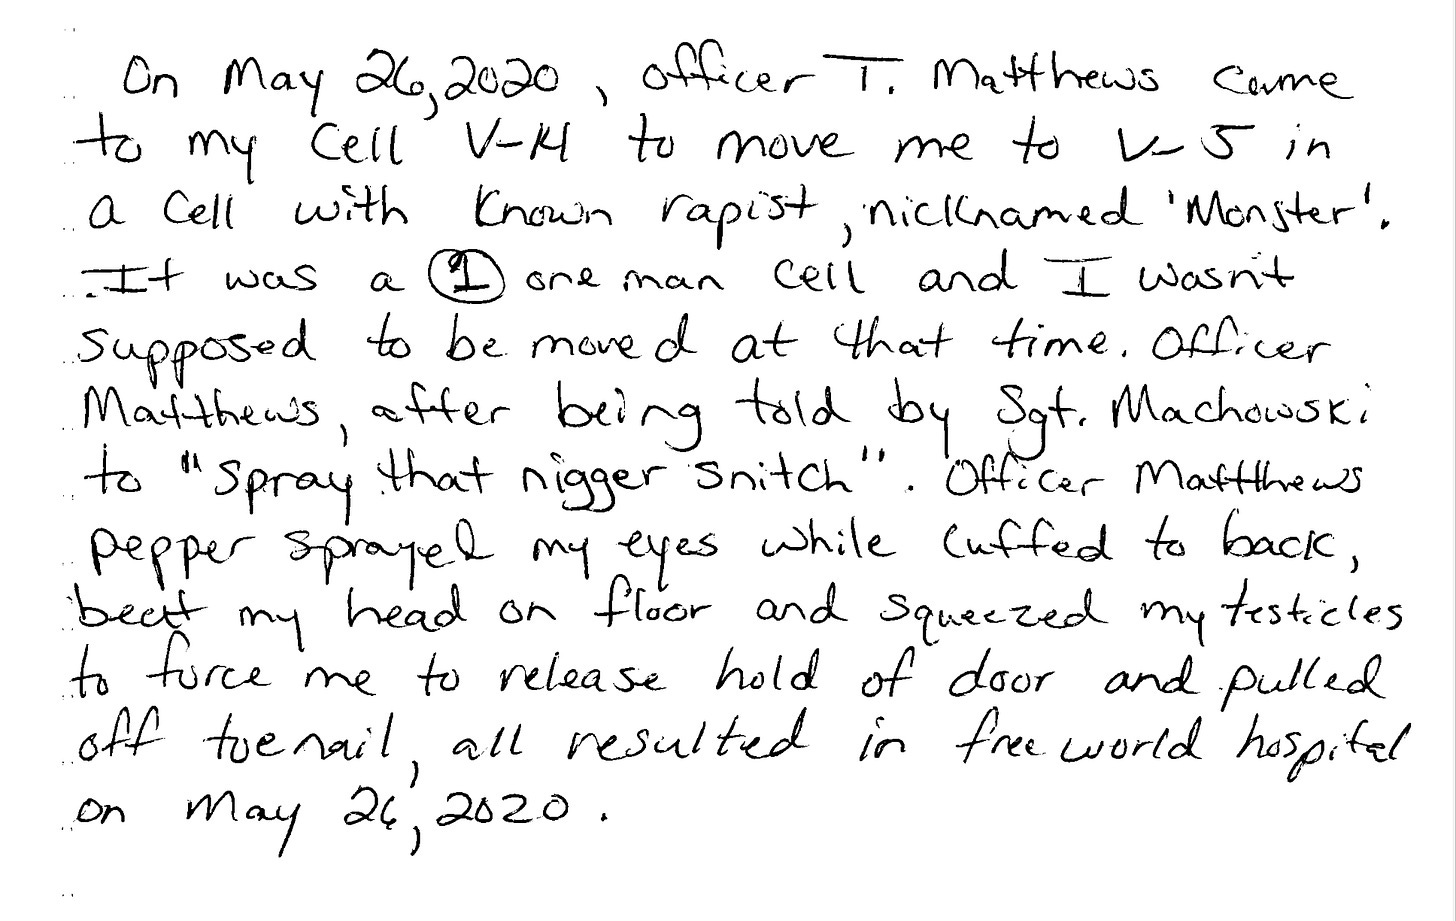 On May 26, 2020, officer T. Matthews came
to my cell V-14 to move me to V-5 in
a cell with known rapist, nicknamed 'Monster'.
It was a 1 one man cell and I wasn't
supposed to be moved at that time. Officer
Matthews, after being told by Sgt. Machowski
to "spray that nigger snitch". Officer Mattthews
pepper sprayed my eyes while cuffed to back,
beat my head on floor and squeezed my testicles
to force me to release hold of door and pulled
off toenail, all resulted in free world hospital
on May 26, 2020.